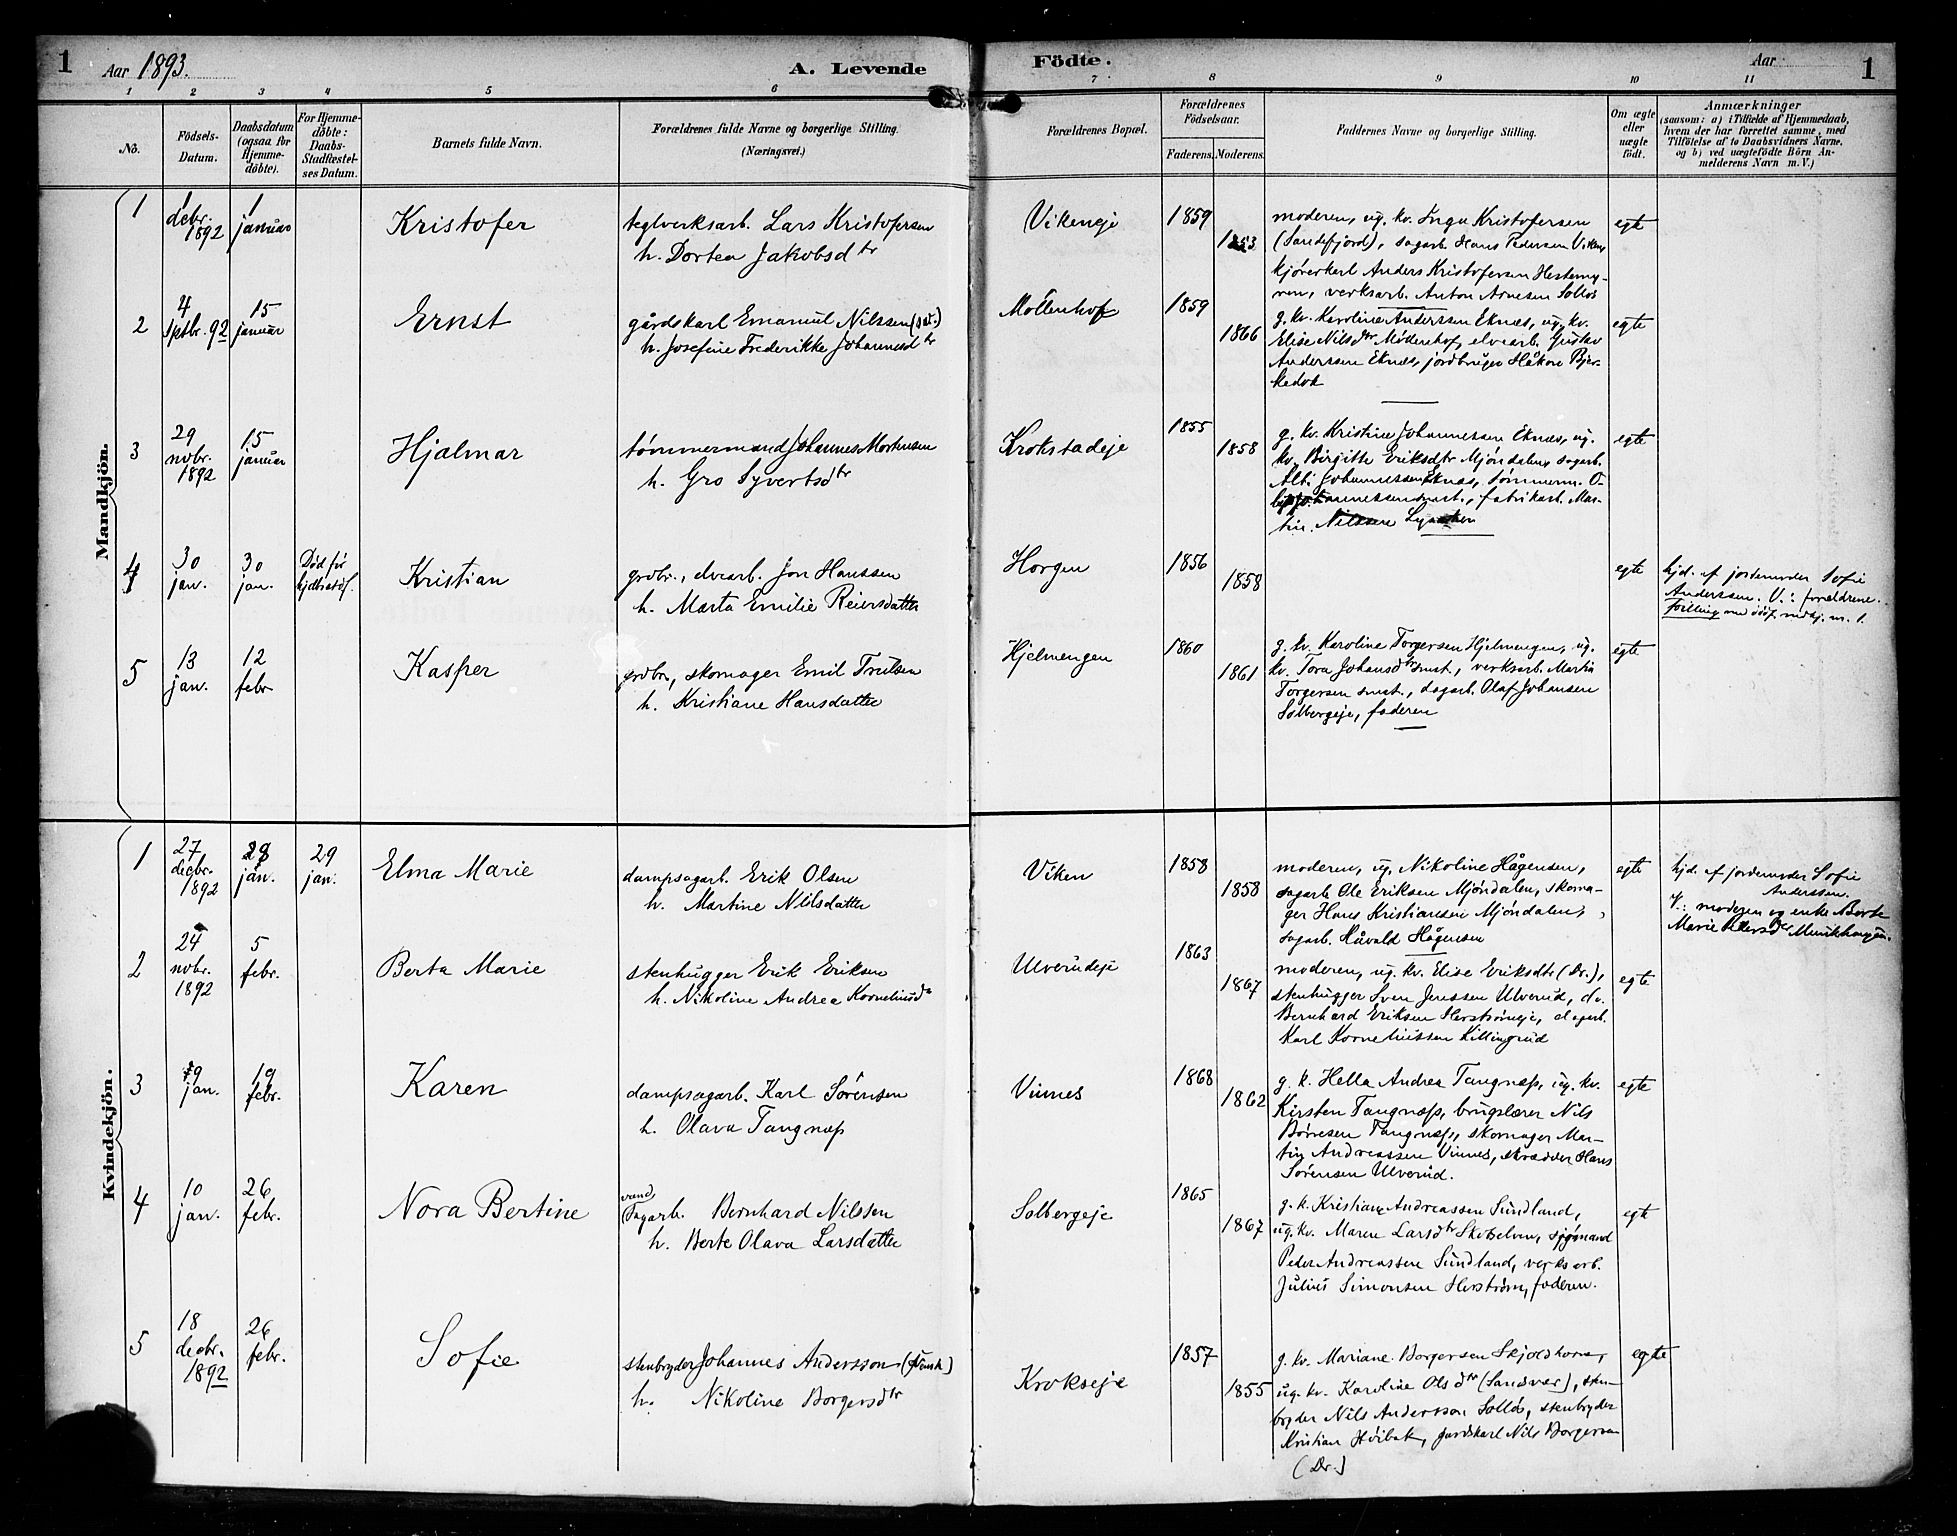 1 Aar 1893. A. Levende Födte. Aar 1
1 2 3 4 5 6 7 8 9 10 11
No. Födsels-Datum. Daabsdatum (ogsaa for Hjemme-döbte). For Hjemme-döbte: Daabs-Stadfæstel-ses Datum. Barnets fulde Navn. Forældrenes fulde Navne og borgerlige Stilling. (Næringsvei.) Forældrenes Bopæl. Forældrenes Födselsaar. Faderens. Moderens. Faddernes Navne og borgerlige Stilling. Om ægte eller uægte födt. Anmærkninger (saasom: a) i Tilfælde af Hjemmedaab, hvem der har forrettet samme, med Tilföielse af to Daabsvidners Navne, og b) ved uægtefödte Börn An-melderens Navn m. V.)
Mandkjön.
1
1 debr. 1892
1 januar
Kristofer
teglverksarb. Lars Kristofersen
h. Dortea Jakobsdtr
Vikeneje
1859
1853
moderen, ug. kv. Inga Kristofersen
(Sandefjord), sagarb. Hans Pedersen Viken
kjørerkarl Anders Kristofersen Hestemy-
ren, verksarb. Anton Arnesen Solløs
egte
2
4 septbr. 92
15 januar
Ernst
gårdskarl Emanuel Nilssen
h. Josefine Frederikke Johannesdtr
Möllenhof
1859
1866
g. kv. Karoline Anderssen Eknæs, ug. kv.
Elise Nilsdtr Møllenhof, elvearb. Gustav
Anderssen Eknæs, jordbruger Håkon Bjer-
kedok
egte
3
29 novbr. 1892
15 januar
Hjalmar
tømmermand Johannes Mortensen
h. Gro Syvertsdtr
Krokstadeje
1855
1858
g. kv. Kristine Johannessen Eknæs, ug.
kv. Birgitte Eriksdtr Mjøndalen, sagarb.
Johannessen Eknæs, tømmerm.
fabrikarb. Mar-
tin Nilssen
egte
4
30 jan.
30 jan.
Død før
Kristian
grdbr., elvearb. Jon Hanssen
h. Marta Emilie Reiersdatter
Horgen
1856
1858
egte
hjd. af jordemoder Sofie
Anderssen. V.: forældrene.
5
13 jan.
12 febr
Kasper
grdbr, skomager Emil Trulsen
h. Kristiane Hansdatter
Hjelmengen
1860
1861
g. kv. Karoline Torgersen Hjelmengen, ug.
kv. Tora Johansdtr smst., verksarb. Martin
Torgersen smst., dagarb. Olaf Johansen
Solbergeje, faderen
egte
Kvindekjön.
1
27 decbr. 1892
29 jan.
29 jan.
Elma Marie
dampsagarb. Erik Olsen
h. Martine Nilsdatter
Viken
1858
1858
moderen, ug. Nikoline Hågensen,
sagarb Ole Eriksen Mjøndalen, skoma-
ger Hans Kristiansen Mjøndalen,
sagarb. Håvald Hågensen
egte
hjd. af jordemoder Sofie
Anderssen.
V.: moderen og enke Berte
Marie
2
24 novbr. 1892
5 febr.
Berta Marie
stenhugger Erik Eriksen
h. Nikoline Andrea Korneliusd
Ulverudeje
1863
1867
moderen, ug. kv. Elise Eriksdtr (Dr.),
stenhugger Sven Jenssen Ulverud, do.
Bernhard Eriksen Herstrømeje, dagarb.
Karl Korneliussen Killingrud
egte
3
jan.
19 febr.
Karen
dampsagarb. Karl Sørensen
h. Olava Tangnæss
Vinnes
1868
1862
g. k. Hella Andrea Tangnæss, ug. kv.
Kirsten Tangnæss, brugslærer Nils
Børresen Tangnæss, skomager Mar-
tin Andreassen Vinnes, skrædder Hans
Sørensen Ulverud.
egte
4
10 jan.
26 febr.
Nora Bertine
vand
Sagarb. Bernhard Nilsen
h. Berte Olava Larsdatter
Solbergeje
1865
1867
g. k. Kristiane Andreassen Sundland,
ug. kv. Maren Larsdtr Skotselven, sjømand
Peder Andreassen Sundland, verksarb.
Julius Simonsen Herstrøm, faderen.
egte
5
18 decbr. 1892
26 febr.
Sofie
stenbryder Johannes Andersson (svensk)
h. Nikoline Borgersdtr
Krokseje
1857
1855
g. kv. Mariane Borgersen Skjoldhorne,
ug. kv. Karoline Olsdtr (Sandsvær), sten-
bryder Nils Andersson Solløs, stenbryder
Kristian Høibak, gardskarl Nils Borgersen
(Dr.)
egte